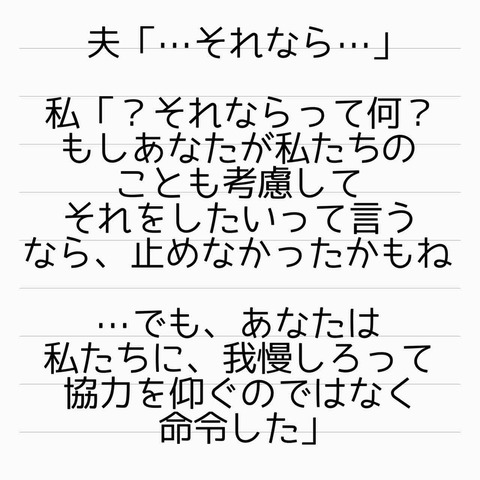 夫「…それなら…」
私「？それならって何？
もしあなたが私たちの
ことも考慮して
それをしたいって言う
なら、止めなかったかもね
…でも、あなたは
私たちに、我慢しろって
協力を仰ぐのではなく
命令した」